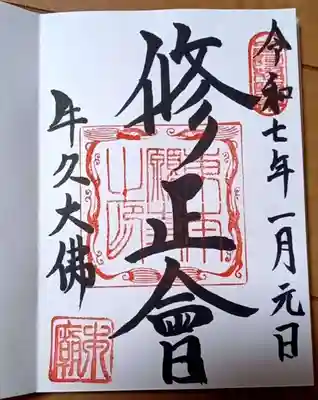 令和七年一月元日
修正會
牛久大佛